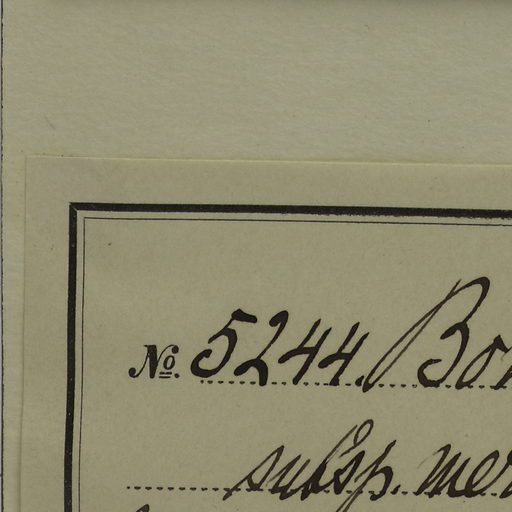 No. 5244. Bor
subsp. mer